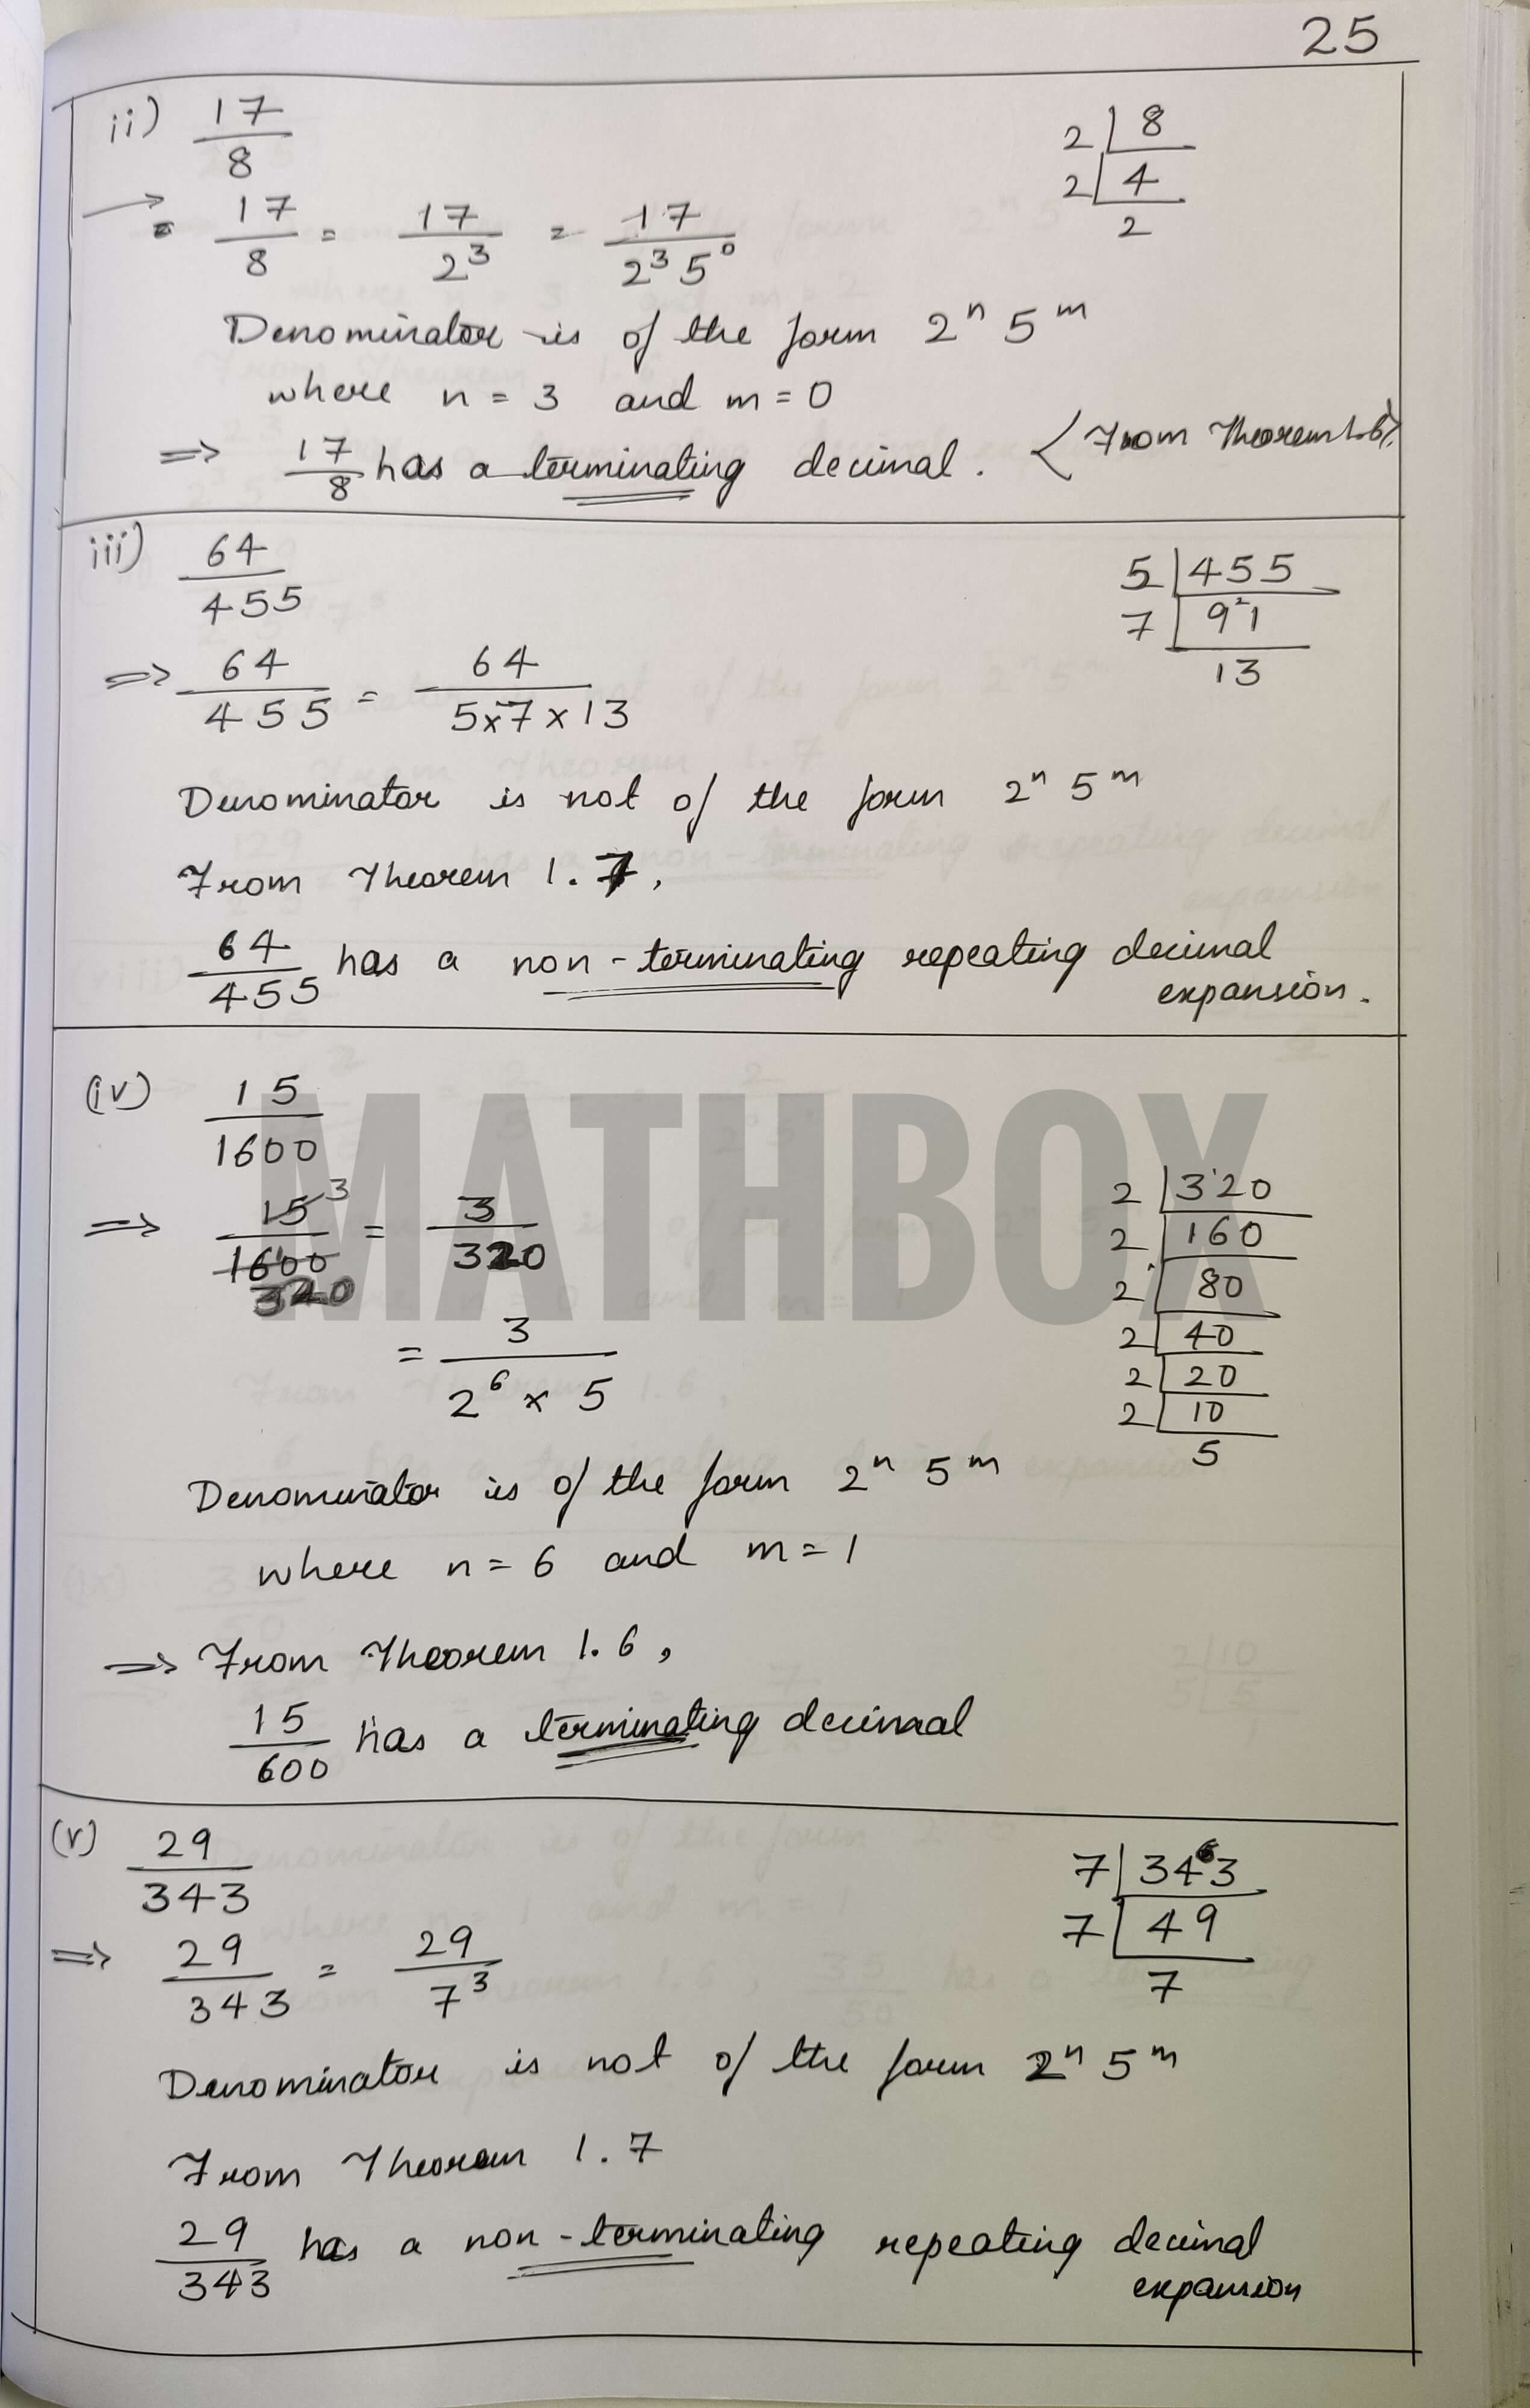 25
ii) 17/8
2 | 8
2 | 4
2
→ = 17/8 = 17/2³ = 17/2³ 5⁰
Denominator is of the form 2ⁿ 5ᵐ
where n = 3 and m = 0
⇒ 17/8 has a terminating decimal. < From Theorem 1.6 >
iii) 64/455
5 | 455
7 | 9²1
13
⇒ 64/455 = 64/5x7x13
Denominator is not of the form 2ⁿ 5ᵐ
From Theorem 1.7,
64/455 has a non-terminating repeating decimal
expansion.
MATHBOX
(iv) 15/1600
⇒ 15 3/1600 320 = 3/320
2 | 320
2 | 160
2 | 80
2 | 40
2 | 20
2 | 10
5
= 3/2⁶ x 5
Denominator is of the form 2ⁿ 5ᵐ
where n = 6 and m = 1
⇒ From Theorem 1.6,
15/600 has a terminating decimal
(v) 29/343
7 | 34⁶3
7 | 49
7
⇒ 29/343 = 29/7³
Denominator is not of the form 2ⁿ 5ᵐ
From Theorem 1.7
29/343 has a non-terminating repeating decimal
expansion